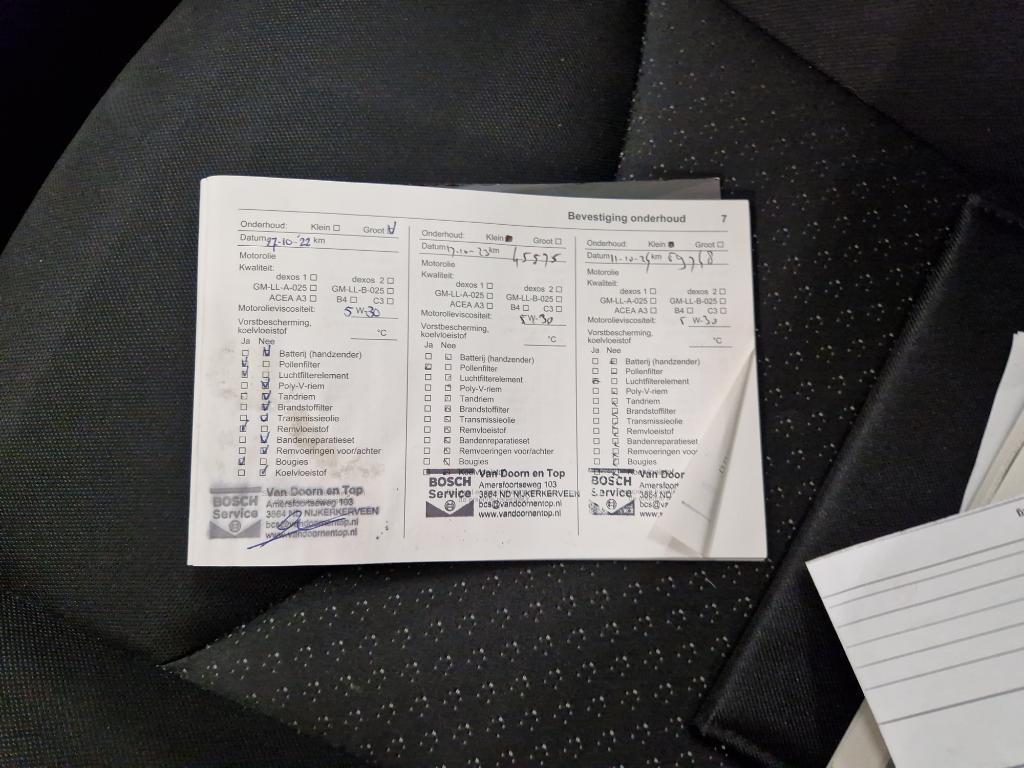 Bevestiging onderhoud 7
Onderhoud: Klein Groot
Datum 27-10-'22 km
Motorolie
Kwaliteit:
dexos 1 dexos 2
GM-LL-A-025 GM-LL-B-025
ACEA A3 B4 C3
Motorolieviscositeit: 5W-30
Vorstbescherming,
koelvloeistof °C
Ja Nee
Batterij (handzender)
Pollenfilter
Luchtfilterelement
Poly-V-riem
Tandriem
Brandstoffilter
Transmissieolie
Remvloeistof
Bandenreparatieset
Remvoeringen voor/achter
Bougies
Koelvloeistof
BOSCH
Service
Van Doorn en Top
Amersfoortseweg 103
3864 ND NIJKERKERVEEN
bcs@vandoornentop.nl
www.vandoornentop.nl
Onderhoud: Klein Groot
Datum 17-10-23 km 45575
Motorolie
Kwaliteit:
dexos 1 dexos 2
GM-LL-A-025 GM-LL-B-025
ACEA A3 B4 C3
Motorolieviscositeit: 5W-30
Vorstbescherming,
koelvloeistof °C
Ja Nee
Batterij (handzender)
Pollenfilter
Luchtfilterelement
Poly-V-riem
Tandriem
Brandstoffilter
Transmissieolie
Remvloeistof
Bandenreparatieset
Remvoeringen voor/achter
Bougies
Koelvloeistof
BOSCH
Service
Van Doorn en Top
Amersfoortseweg 103
3864 ND NIJKERKERVEEN
bcs@vandoornentop.nl
www.vandoornentop.nl
Onderhoud: Klein Groot
Datum 11-10-24 km
Motorolie
Kwaliteit:
dexos 1 dexos 2
GM-LL-A-025 GM-LL-B-025
ACEA A3 B4 C3
Motorolieviscositeit: 5W-30
Vorstbescherming,
koelvloeistof °C
Ja Nee
Batterij (handzender)
Pollenfilter
Luchtfilterelement
Poly-V-riem
Tandriem
Brandstoffilter
Transmissieolie
Remvloeistof
Bandenreparatieset
Remvoeringen voor
Bougies
BOSCH
Service
Van Door
Amersfoort
3864 ND
bcs@v
www.v